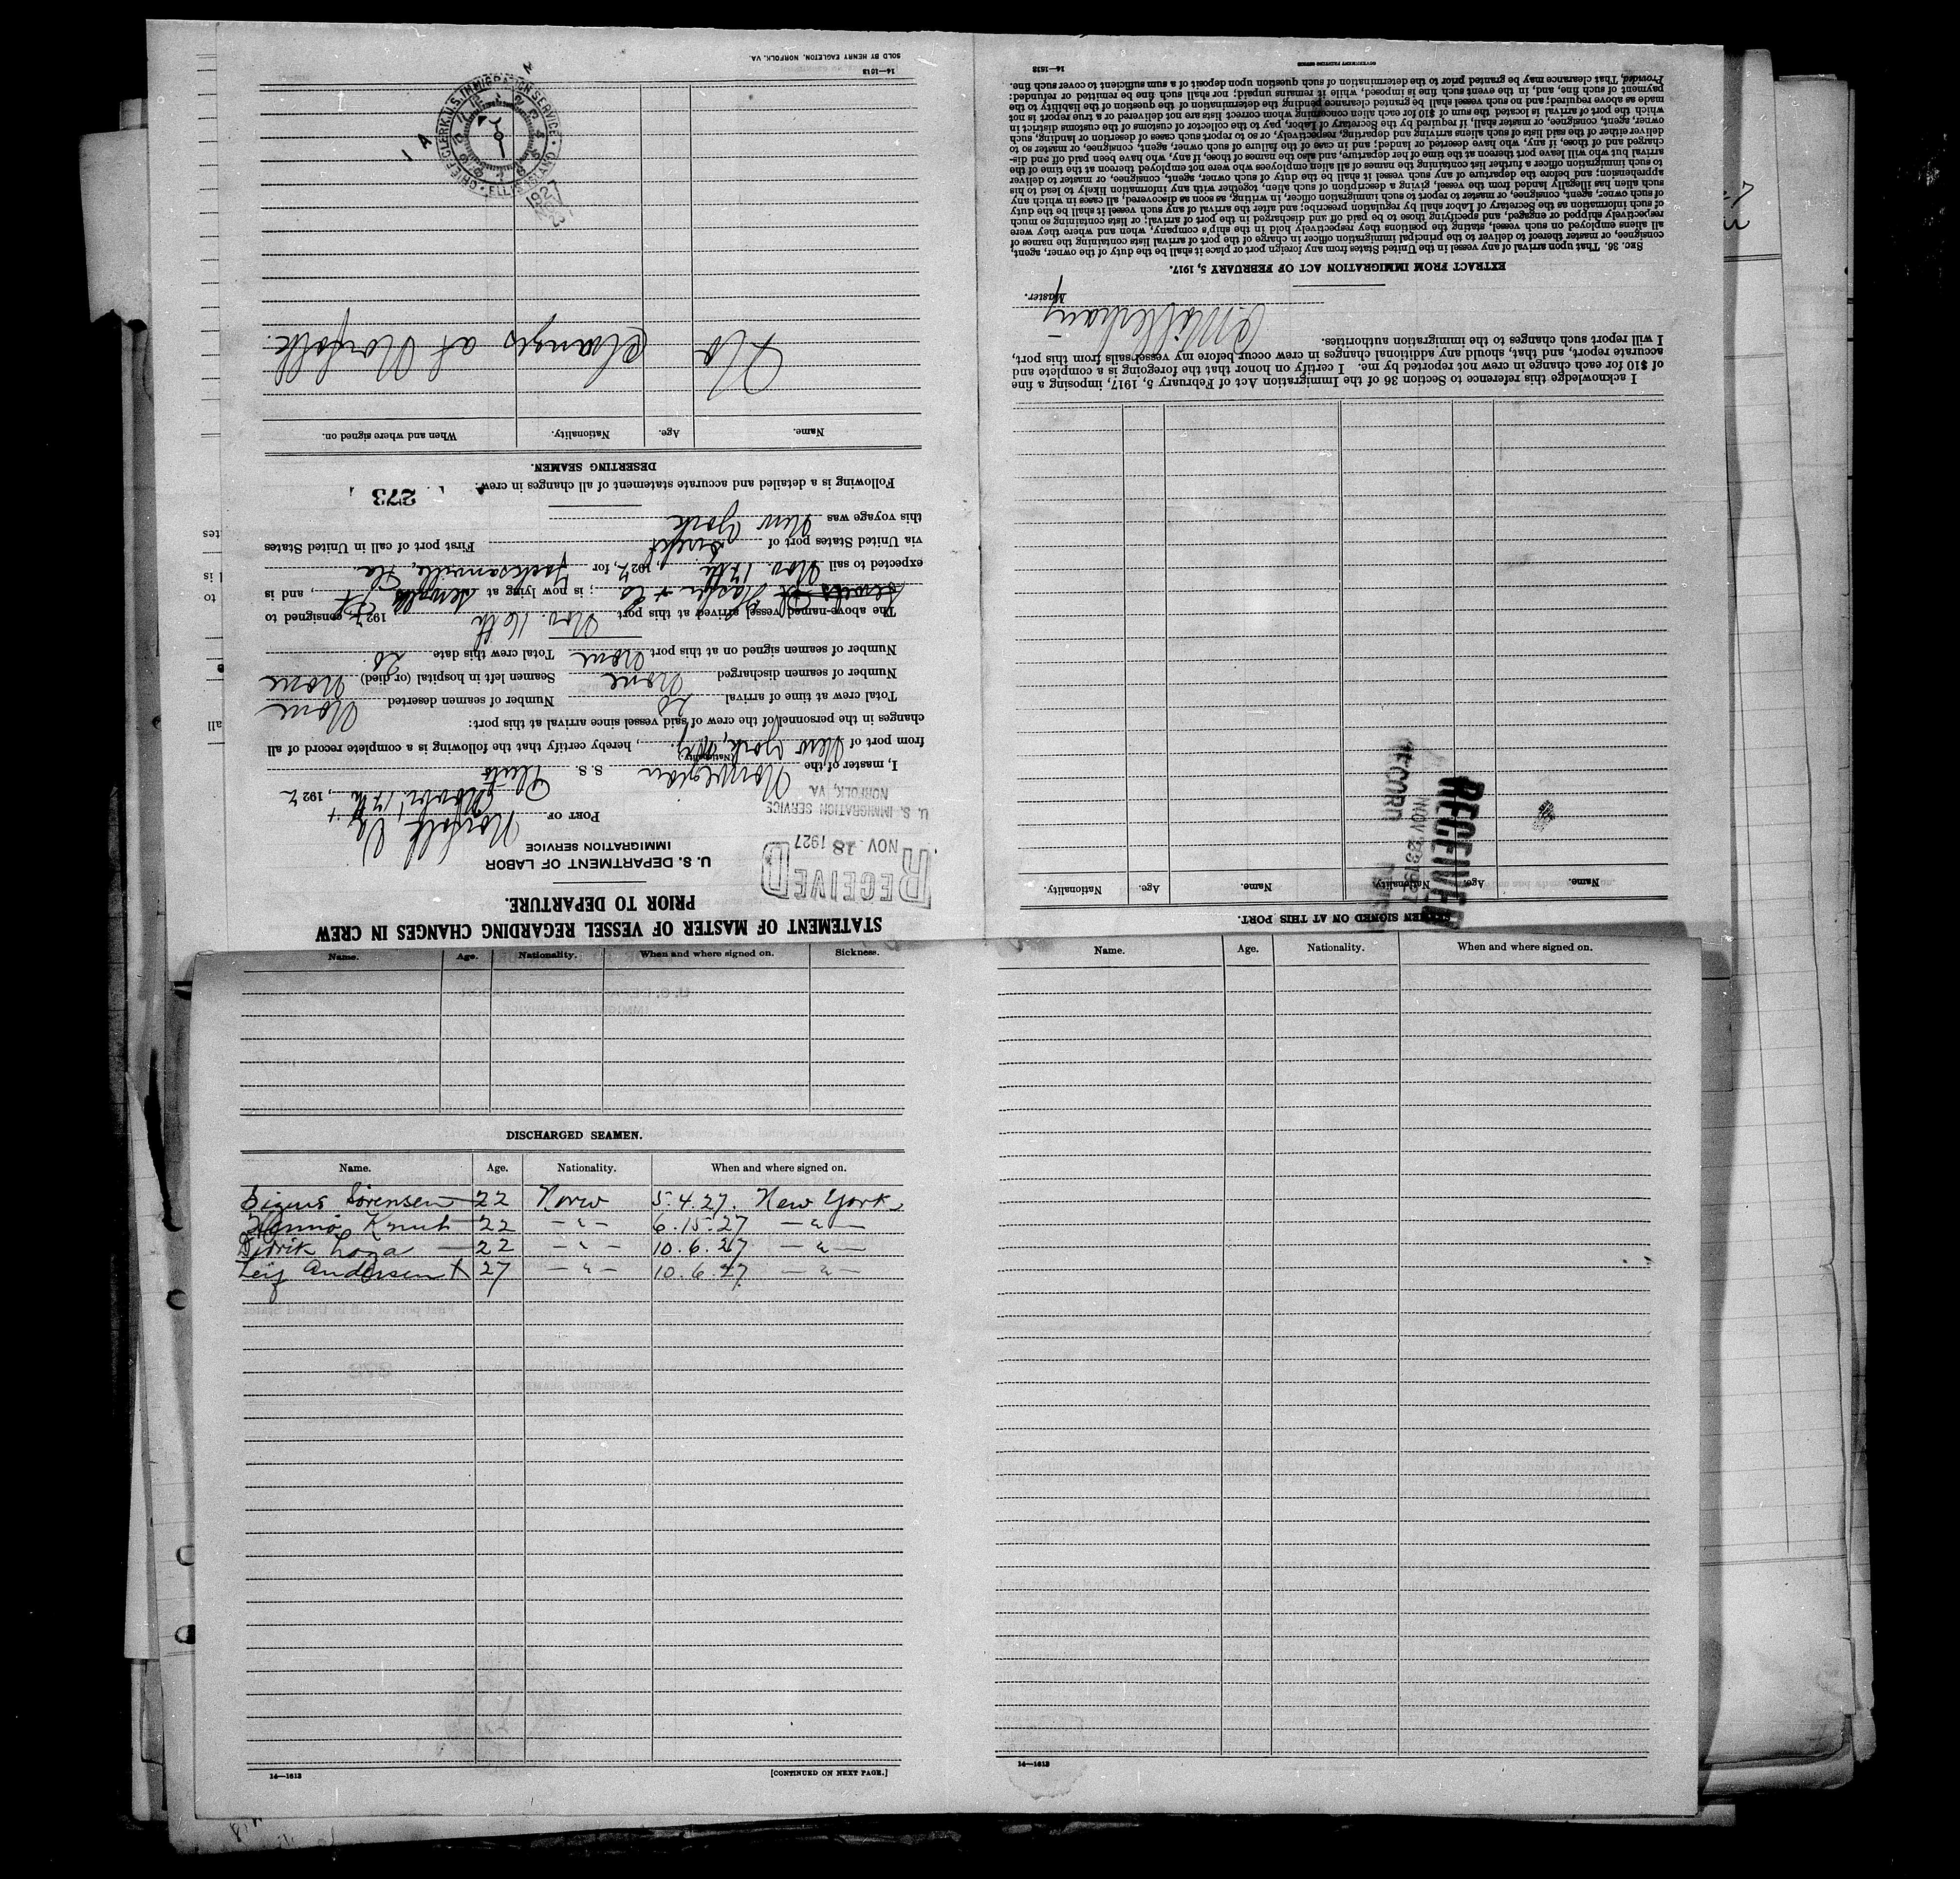 STATEMENT OF MASTER OF VESSEL REGARDING CHANGES IN CREW
PRIOR TO DEPARTURE.
U. S. DEPARTMENT OF LABOR
IMMIGRATION SERVICE
RECEIVED
NOV 18 1927
U. S. IMMIGRATION SERVICE
NORFOLK, VA.
PORT OF Norfolk Va
Novbr 17th, 1927
I, master of the Norwegian S. S.
(Nationality.)
from port of New York, N.Y., hereby certify that the following is a complete record of all
changes in the personnel of the crew of said vessel since arrival at this port:
Total crew at time of arrival 20 Number of seamen deserted None
Number of seamen discharged None Seamen left in hospital (or died) None
Number of seamen signed on at this port None Total crew this date 20.
The above-named vessel arrived at this port Nov. 16th 1927 consigned to
Hasler & Co; is now lying at Sewells Pt, and is
expected to sail Nov. 17th, 1927, for Jacksonville, Fla
via United States port of direct First port of call in United States
this voyage was New York
Following is a detailed and accurate statement of all changes in crew:
273
DESERTING SEAMEN.
Name. Age. Nationality. When and where signed on.
No Changes at Norfolk.
CHIEF CLERK, U.S. IMMIGRATION SERVICE
ELLIS ISLAND
1927
14—1613
SOLD BY HENRY EAGLETON, NORFOLK, VA.
SEAMEN SIGNED ON AT THIS PORT.
Name. Age. Nationality. Name. Age. Nationality.
RECEIVED
NOV 23 1927
RECORD
I acknowledge this reference to Section 36 of the Immigration Act of February 5, 1917, imposing a fine
of $10 for each change in crew not reported by me. I certify on honor that the foregoing is a complete and
accurate report, and that, should any additional changes in crew occur before my vessel sails from this port,
I will report such changes to the immigration authorities.
Master.
EXTRACT FROM IMMIGRATION ACT OF FEBRUARY 5, 1917.
SEC. 36. That upon arrival of any vessel in the United States from any foreign port or place it shall be the duty of the owner, agent,
consignee, or master thereof to deliver to the principal immigration officer in charge of the port of arrival lists containing the names of
all aliens employed on such vessel, stating the positions they respectively hold in the ship's company, when and where they were
respectively shipped or engaged, and specifying those to be paid off and discharged in the port of arrival; or lists containing so much
of such information as the Secretary of Labor shall by regulation prescribe; and after the arrival of any such vessel it shall be the duty
of such owner, agent, consignee, or master to report to such immigration officer, in writing, as soon as discovered, all cases in which any
such alien has illegally landed from the vessel, giving a description of such alien, together with any information likely to lead to his
apprehension; and before the departure of any such vessel it shall be the duty of such owner, agent, consignee, or master to deliver
to such immigration officer a further list containing the names of all alien employees who were not employed thereon at the time of the
arrival but who will leave port thereon at the time of her departure, and also the names of those, if any, who have been paid off and dis-
charged and of those, if any, who have deserted or landed; and in case of the failure of such owner, agent, consignee, or master so to
deliver either of the said lists of such aliens arriving and departing, respectively, or so to report such cases of desertion or landing, such
owner, agent, consignee, or master shall, if required by the Secretary of Labor, pay to the collector of customs of the customs district in
which the port of arrival is located the sum of $10 for each alien concerning whom correct lists are not delivered or a true report is not
made as above required; and no such vessel shall be granted clearance pending the determination of the question of the liability to the
payment of such fine, and, in the event such fine is imposed, while it remains unpaid; nor shall such fine be remitted or refunded:
Provided, That clearance may be granted prior to the determination of such question upon deposit of a sum sufficient to cover such fine.
GOVERNMENT PRINTING OFFICE 14—1613
Name. Age. Nationality. When and where signed on. Sickness.
DISCHARGED SEAMEN.
Name. Age. Nationality. When and where signed on.
Sigurs Sørensen 22 Norw 5.4.27. New York
Knut 22 — " — 6.15.27 — " —
22 — " — 10.6.27 — " —
Leif Andersen X 27 — " — 10.6.27 — " —
14—1613 [CONTINUED ON NEXT PAGE.]
Name. Age. Nationality. When and where signed on.
14—1613